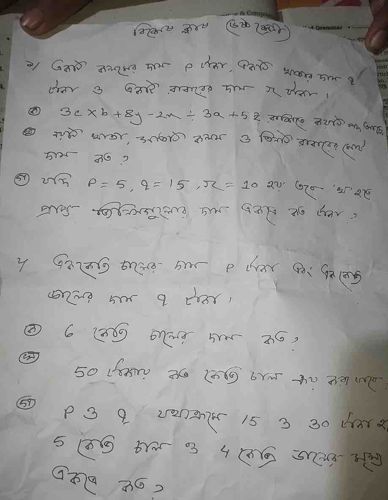 বিকাল ক্লাস (৬ষ্ঠ শ্রেণী)
১/ একটি কলমের দাম p টাকা, একটি খাতার দাম q
টাকা ও একটি রাবারের দাম x টাকা।
3c×b+8y-2x÷3a+5z রাশিতে কয়টি পদ আছে
খাতা, কলম ও তিনটি রাবারের মোট
দাম কত?
গ) যদি p=5, q=15, x=10 হয় তবে 'খ' হতে
প্রাপ্ত জিনিসগুলোর দাম একত্রে কত টাকা?
২/ এককেজি চালের দাম p টাকা এবং এককেজি
ডালের দাম q টাকা।
ক) 6 কেজি চালের দাম কত?
খ) 50 টাকায় কত কেজি চাল ক্রয় করা যাবে
গ) p ও q যথাক্রমে 15 ও 30 টাকা হ
5 কেজি চাল ও 4 কেজি ডালের মূল্য
একত্রে কত?